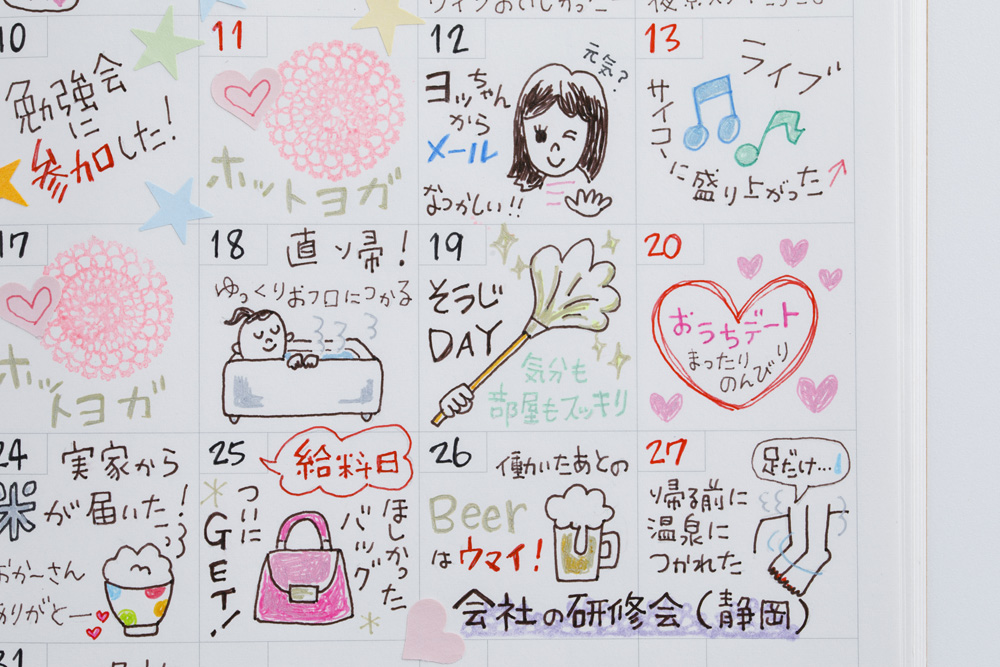 10
勉強会
に
参加した!
11
ホットヨガ
12
ヨッちゃん
から
メール
なつかしい!!
元気?
13
ライブ
サイコーに盛り上がった
17
ホットヨガ
18
直り帰!
ゆっくりおフロにつかる
19
そうじ
DAY
気分も
部屋もスッキリ
20
おうちデート
まったり
のんびり
24
実家から
米が届いた!
おか〜さん
ありがとー
25
給料日
ほしかった
バッグ
ついに
GET!
26
働いたあとの
Beer
はウマイ!
27
足だけ…
帰る前に
温泉に
つかれた
会社の研修会(静岡)
31